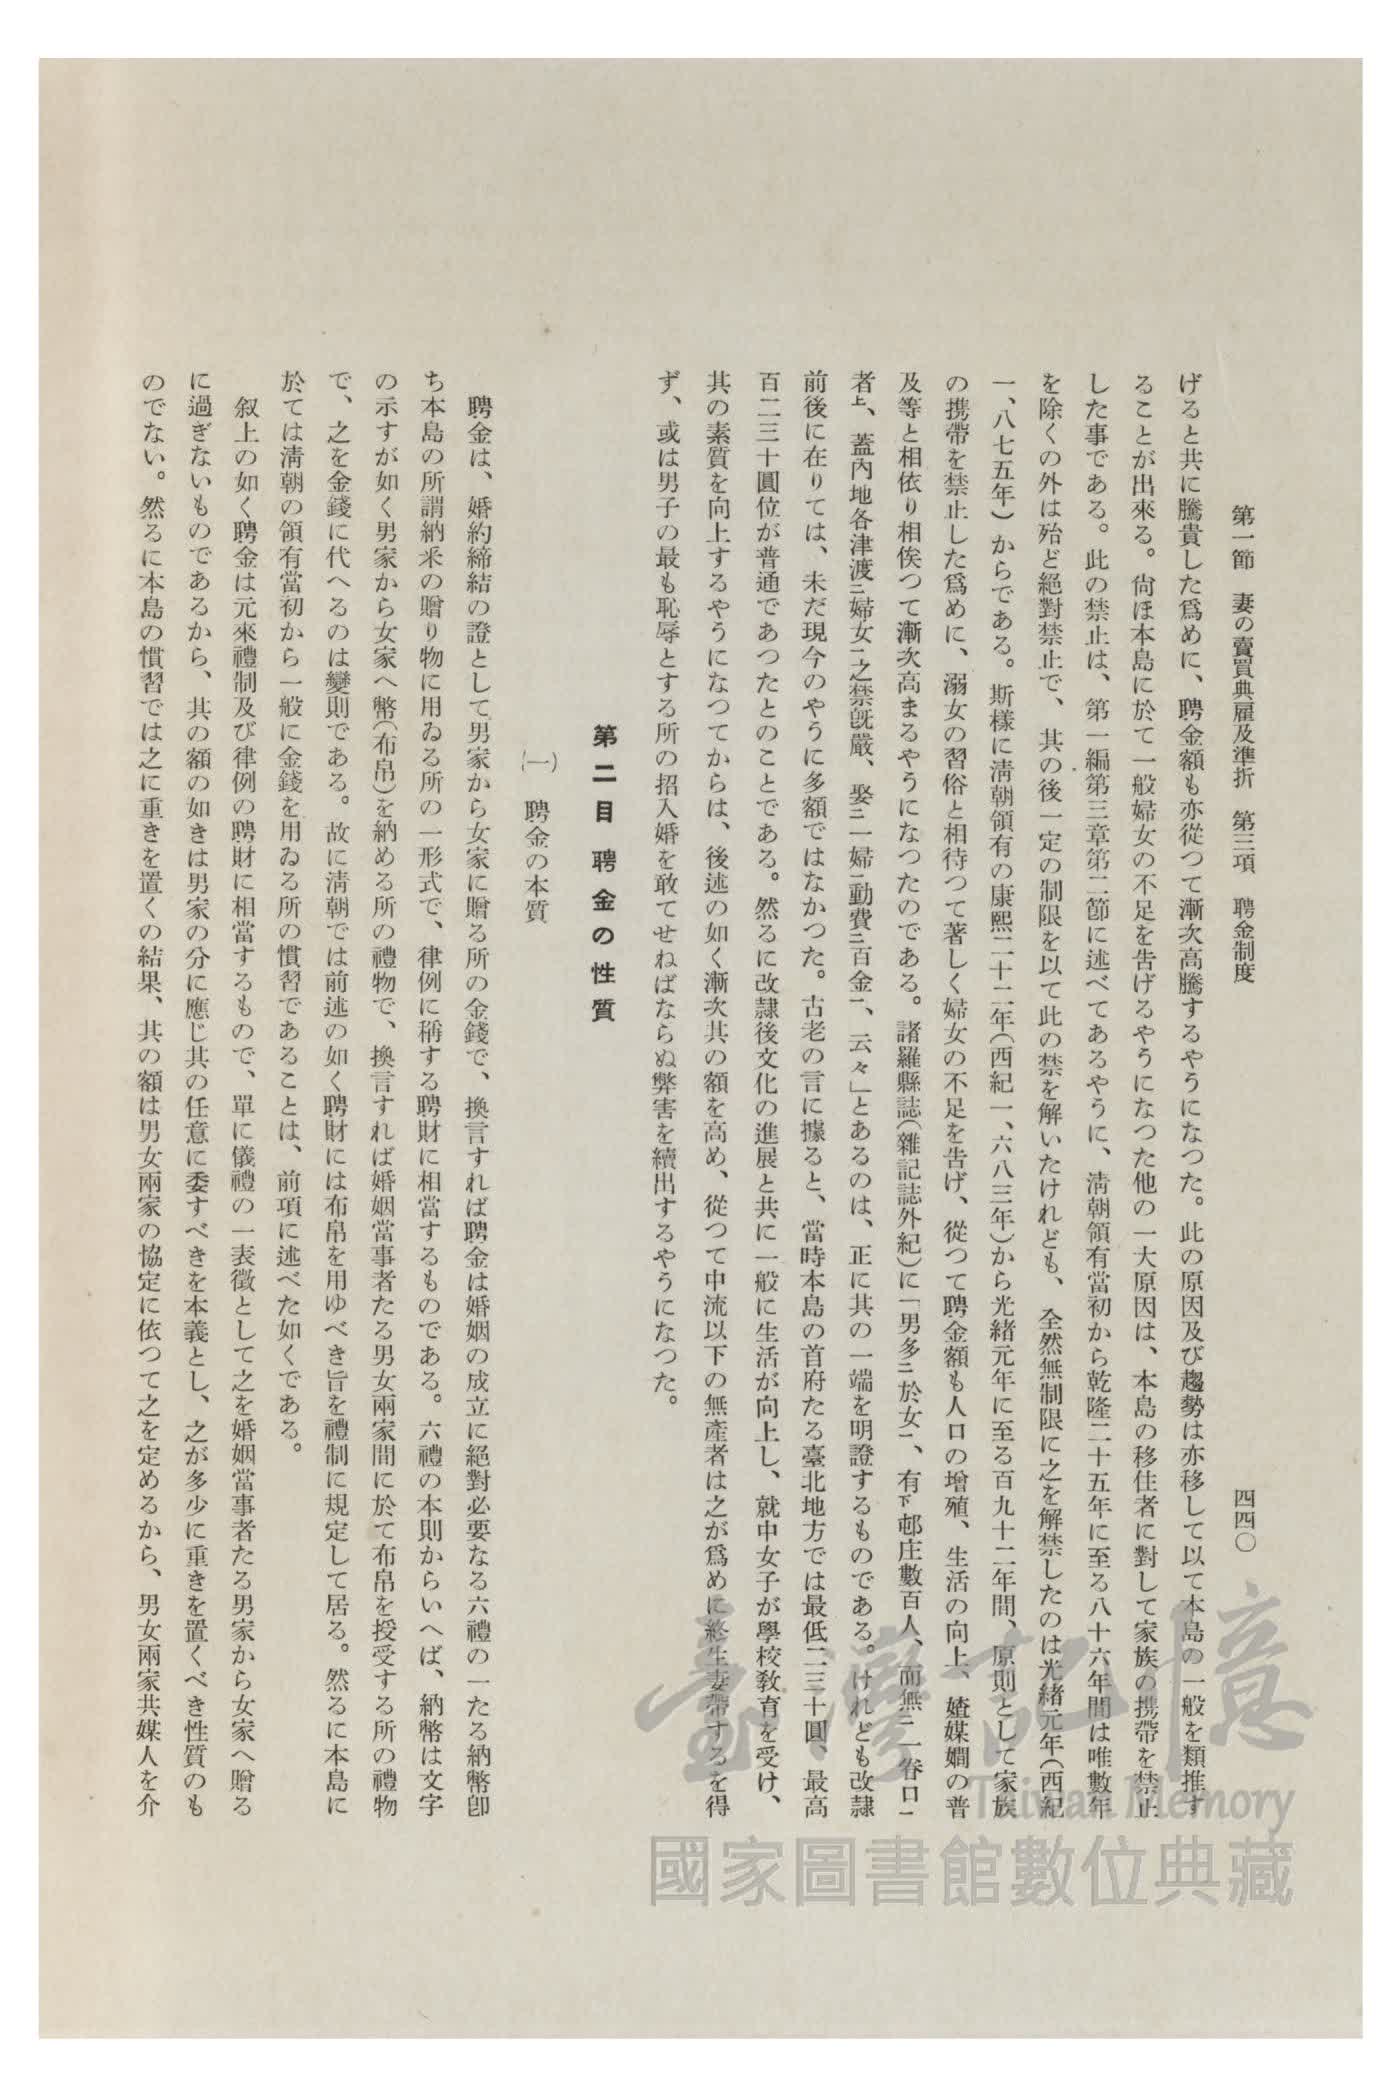 第一節　妻の賣買典雇及準折　第三項　聘金制度　四四〇
げると共に騰貴した爲めに、聘金額も亦從つて漸次高騰するやうになつた。此の原因及び趨勢は亦移して以て本島の一般を類推す
ることが出來る。尙ほ本島に於て一般婦女の不足を告げるやうになつた他の一大原因は、本島の移住者に對して家族の携帶を禁止
した事である。此の禁止は、第一編第三章第二節に述べてあるやうに、淸朝領有當初から乾隆二十五年に至る八十六年間は唯數年
を除くの外は殆ど絕對禁止で、其の後一定の制限を以て此の禁を解いたけれども、全然無制限に之を解禁したのは光緖元年（西紀
一、八七五年）からである。斯樣に淸朝領有の康熙二十二年（西紀一、六八三年）から光緖元年に至る百九十二年間、原則として家族
の携帶を禁止した爲めに、溺女の習俗と相待つて著しく婦女の不足を告げ、從つて聘金額も人口の增殖、生活の向上、媒媒嫺の普
及等と相依り相俟つて漸次高まるやうになつたのである。諸羅縣誌（雜記誌外紀）に「男多ニ於女一、有下邨庄數百人、而無ニ一眷口一
者上、蓋內地各津渡ニ婦女一之禁旣嚴、娶ニ一婦一動費ニ百金一、云々」とあるのは、正に其の一端を明證するものである。けれども改隸
前後に在りては、未だ現今のやうに多額ではなかつた。古老の言に據ると、當時本島の首府たる臺北地方では最低二三十圓、最高
百二三十圓位が普通であつたとのことである。然るに改隸後文化の進展と共に一般に生活が向上し、就中女子が學校敎育を受け、
其の素質を向上するやうになつてからは、後述の如く漸次其の額を高め、從つて中流以下の無產者は之が爲めに終生妻帶するを得
ず、或は男子の最も恥辱とする所の招入婚を敢てせねばならぬ弊害を續出するやうになつた。
第二目　聘金の性質
（一）　聘金の本質
聘金は、婚約締結の證として男家から女家に贈る所の金錢で、換言すれば聘金は婚姻の成立に絕對必要なる六禮の一たる納幣卽
ち本島の所謂納釆の贈り物に用ゐる所の一形式で、律例に稱する聘財に相當するものである。六禮の本則からいへば、納幣は文字
の示すが如く男家から女家へ幣（布帛）を納める所の禮物で、換言すれば婚姻當事者たる男女兩家間に於て布帛を授受する所の禮物
で、之を金錢に代へるのは變則である。故に淸朝では前述の如く聘財には布帛を用ゆべき旨を禮制に規定して居る。然るに本島に
於ては淸朝の領有當初から一般に金錢を用ゐる所の慣習であることは、前項に述べた如くである。
叙上の如く聘金は元來禮制及び律例の聘財に相當するもので、單に儀禮の一表徵として之を婚姻當事者たる男家から女家へ贈る
に過ぎないものであるから、其の額の如きは男家の分に應じ其の任意に委すべきを本義とし、之が多少に重きを置くべき性質のも
のでない。然るに本島の慣習では之に重きを置くの結果、其の額は男女兩家の協定に依つて之を定めるから、男女兩家共媒人を介
臺灣記憶
Taiwan Memory
國家圖書館數位典藏